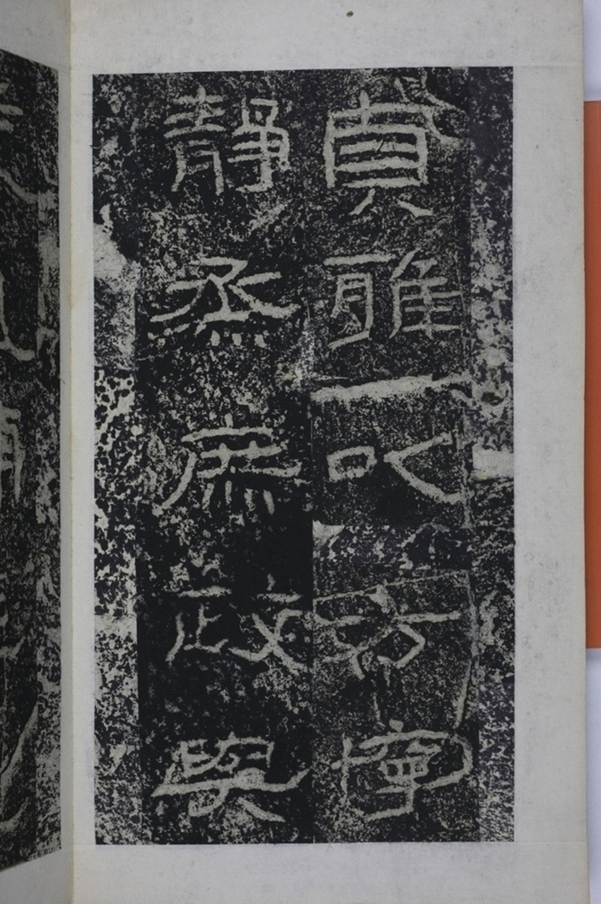 貞雅以方寧
靜烝庶政與